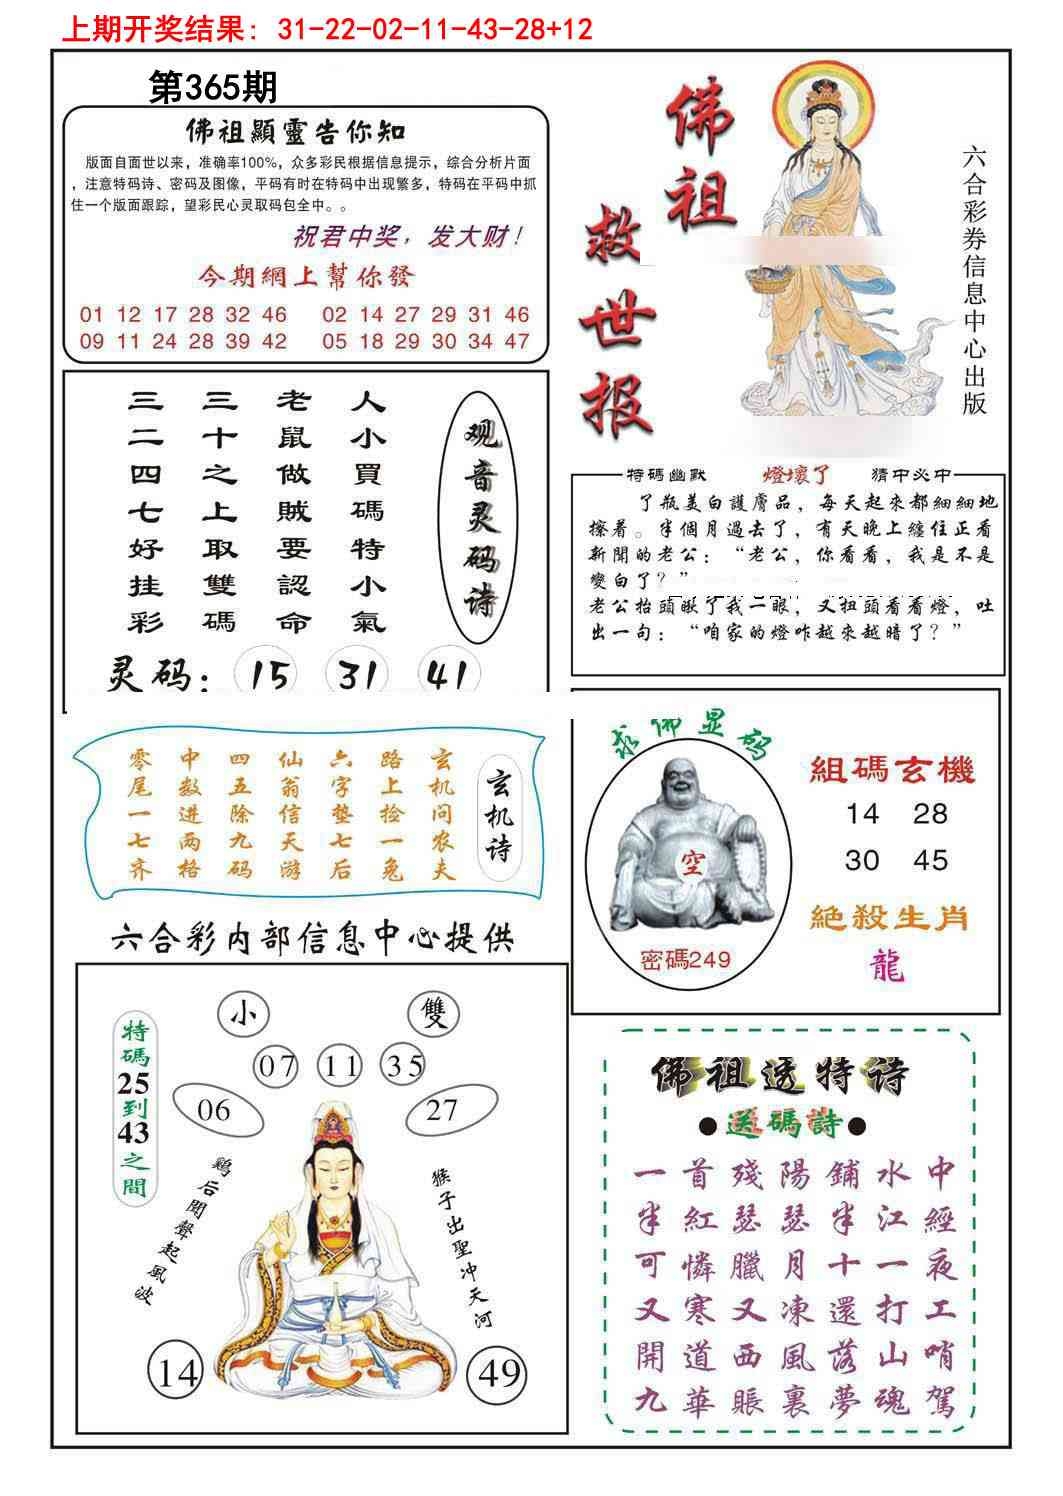 上期开奖结果: 31-22-02-11-43-28+12
第365期
佛祖顯靈告你知
版面自面世以来，准确率100%，众多彩民根据信息提示，综合分析片面
，注意特码诗、密码及图像，平码有时在特码中出现繁多，特码在平码中抓
住一个版面跟踪，望彩民心灵取码包全中。。
祝君中奖，发大财！
今期網上幫你發
01 12 17 28 32 46 02 14 27 29 31 46
09 11 24 28 39 42 05 18 29 30 34 47
佛祖
救世报
六合彩券信息中心出版
观音灵码诗
人小買碼特小氣
老鼠做賊要認命
三十之上取雙碼
三二四七好挂彩
灵码: 15 31 41
特碼幽默 燈壞了 猜中必中
了瓶美白護膚品，每天起來都細細地
擦着。半個月過去了，有天晚上纏住正看
新聞的老公：“老公，你看看，我是不是
變白了？”
老公抬頭瞅了我一眼，又扭頭看看燈，吐
出一句：“咱家的燈咋越來越暗了？”
玄机诗
玄机问农夫
路上捡一兔
六字垫七后
仙翁信天游
四五除九码
中数进两格
零尾一七齐
求佛显码
空
密碼249
組碼玄機
14 28
30 45
絕殺生肖
龍
六合彩内部信息中心提供
特碼25到43之間
小 雙
07 11 35
06 27
鷄后聞聲起風波
猴子出聖冲天河
14 49
佛祖透特诗
●送碼詩●
一首殘陽鋪水中
半紅瑟瑟半江經
可憐臘月十一夜
又寒又凍還打工
開道西風落山哨
九華賬裏夢魂駕